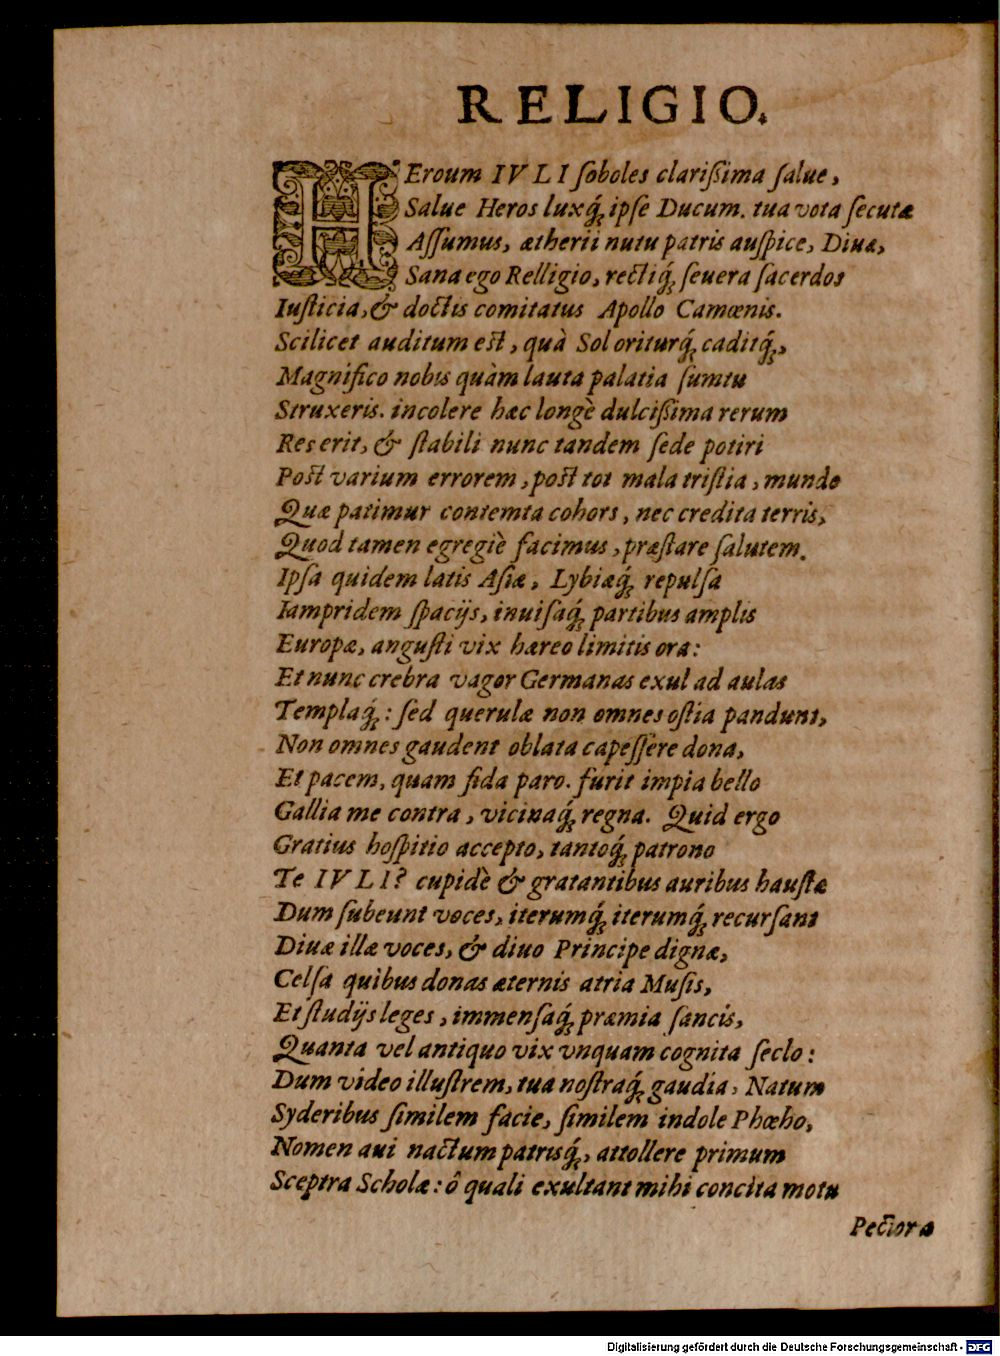 RELIGIO.
HEroum IVLI ſoboles clariſſima ſalue,
Salue Heros luxq́ꝫ ipſe Ducum. tua vota ſecutæ
Aſſumus, ætherii nutu patris auſpice, Diuæ,
Sana ego Relligio, rectiq́ꝫ ſeuera ſacerdos
Iuſticia, & doctis comitatus Apollo Camœnis.
Scilicet auditum est, quà Sol oriturq́ꝫ caditq́ꝫ,
Magnifico nobis quàm lauta palatia ſumtu
Struxeris. incolere hæc longè dulciſſima rerum
Res erit, & ſtabili nunc tandem ſede potiri
Post varium errorem, post tot mala triſtia, mundo
Quæ patimur contemta cohors, nec credita terris,
Quod tamen egregiè facimus, præſtare ſalutem.
Ipſa quidem latis Aſiæ, Lybiæq́ꝫ repulſa
Iampridem ſpacijs, inuiſaq́ꝫ partibus amplis
Europæ, anguſti vix hæreo limitis ora:
Et nunc crebra vagor Germanas exul ad aulas
Templaq́ꝫ: ſed querulæ non omnes oſtia pandunt,
Non omnes gaudent oblata capeſſere dona,
Et pacem, quam fida paro. furit impia bello
Gallia me contra, vicinaq́ꝫ regna. Quid ergo
Gratius hoſpitio accepto, tantoq́ꝫ patrono
Te IVLI? cupidè & gratantibus auribus hauſtæ
Dum ſubeunt voces, iterumq́ꝫ iterumq́ꝫ recurſant
Diuæ illæ voces, & diuo Principe dignæ,
Celſa quibus donas æternis atria Muſis,
Et ſtudijs leges, immenſaq́ꝫ præmia ſancis,
Quanta vel antiquo vix vnquam cognita ſeclo:
Dum video illuſtrem, tua noſtraq́ꝫ gaudia, Natum
Syderibus ſimilem facie, ſimilem indole Phœbo,
Nomen aui nactum patrisq́ꝫ, attollere primum
Sceptra Scholæ: ô quali exultant mihi concita motu
Pectora
Digitalisierung gefördert durch die Deutsche Forschungsgemeinschaft - DFG